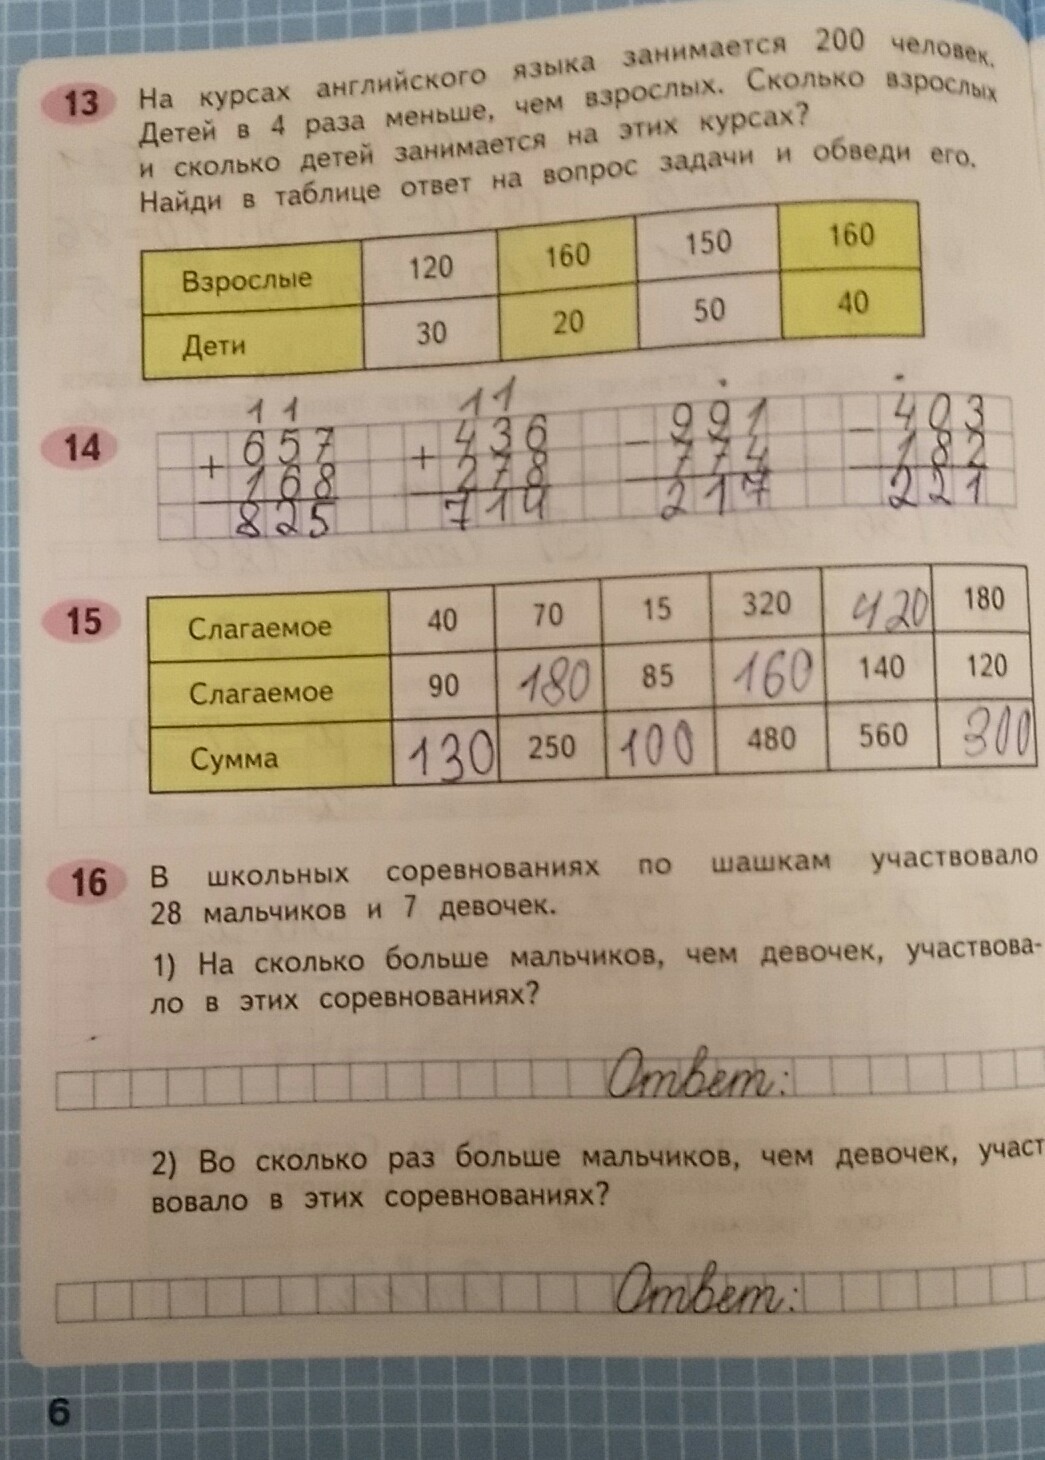 13 На курсах английского языка занимается 200 человек.
Детей в 4 раза меньше, чем взрослых. Сколько взрослых
и сколько детей занимается на этих курсах?
Найди в таблице ответ на вопрос задачи и обведи его.
Взрослые 120 160 150 160
Дети 30 20 50 40
1 1 1 1
14 + 657 + 436 − 991 − 403
168 278 774 182
825 714 217 221
15 Слагаемое 40 70 15 320 420 180
Слагаемое 90 180 85 160 140 120
Сумма 130 250 100 480 560 300
16 В школьных соревнованиях по шашкам участвовало
28 мальчиков и 7 девочек.
1) На сколько больше мальчиков, чем девочек, участвова-
ло в этих соревнованиях?
Ответ:
2) Во сколько раз больше мальчиков, чем девочек, участ
вовало в этих соревнованиях?
Ответ:
6